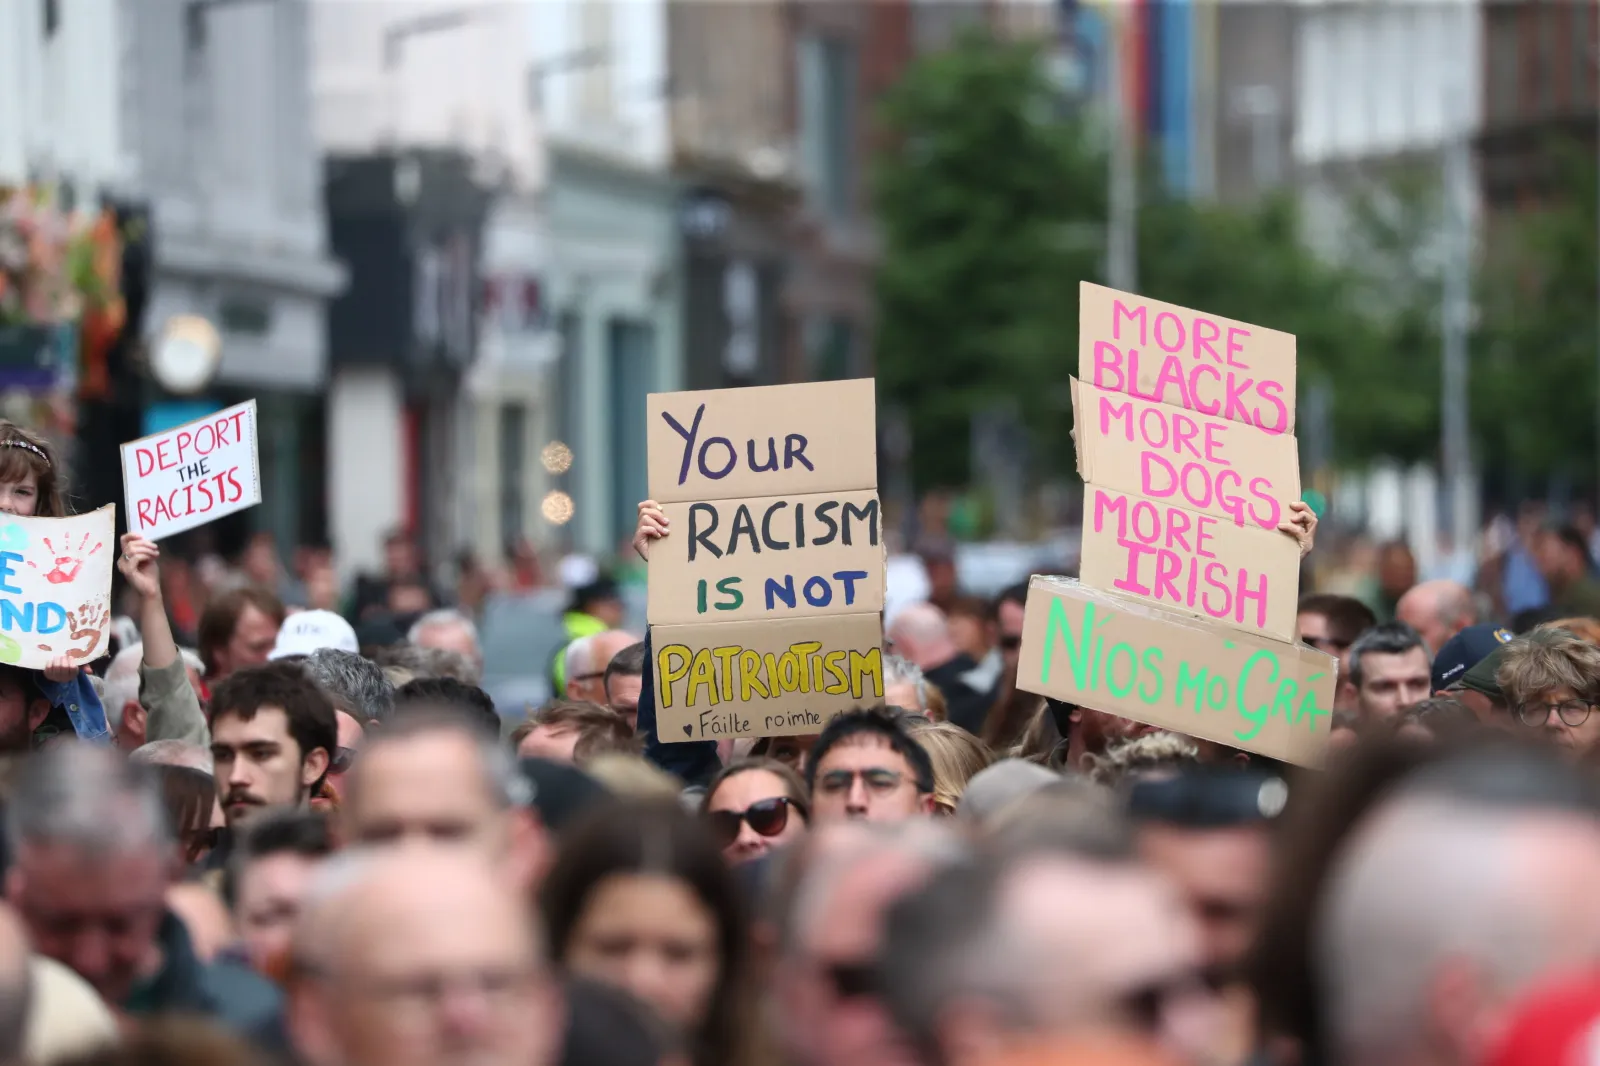 DEPORT
THE
RACISTS
E
ND
YOUR
RACISM
IS NOT
PATRIOTISM
♥ Fáilte roimhe
MORE
BLACKS
MORE
DOGS
MORE
IRISH
Níos mó Grá